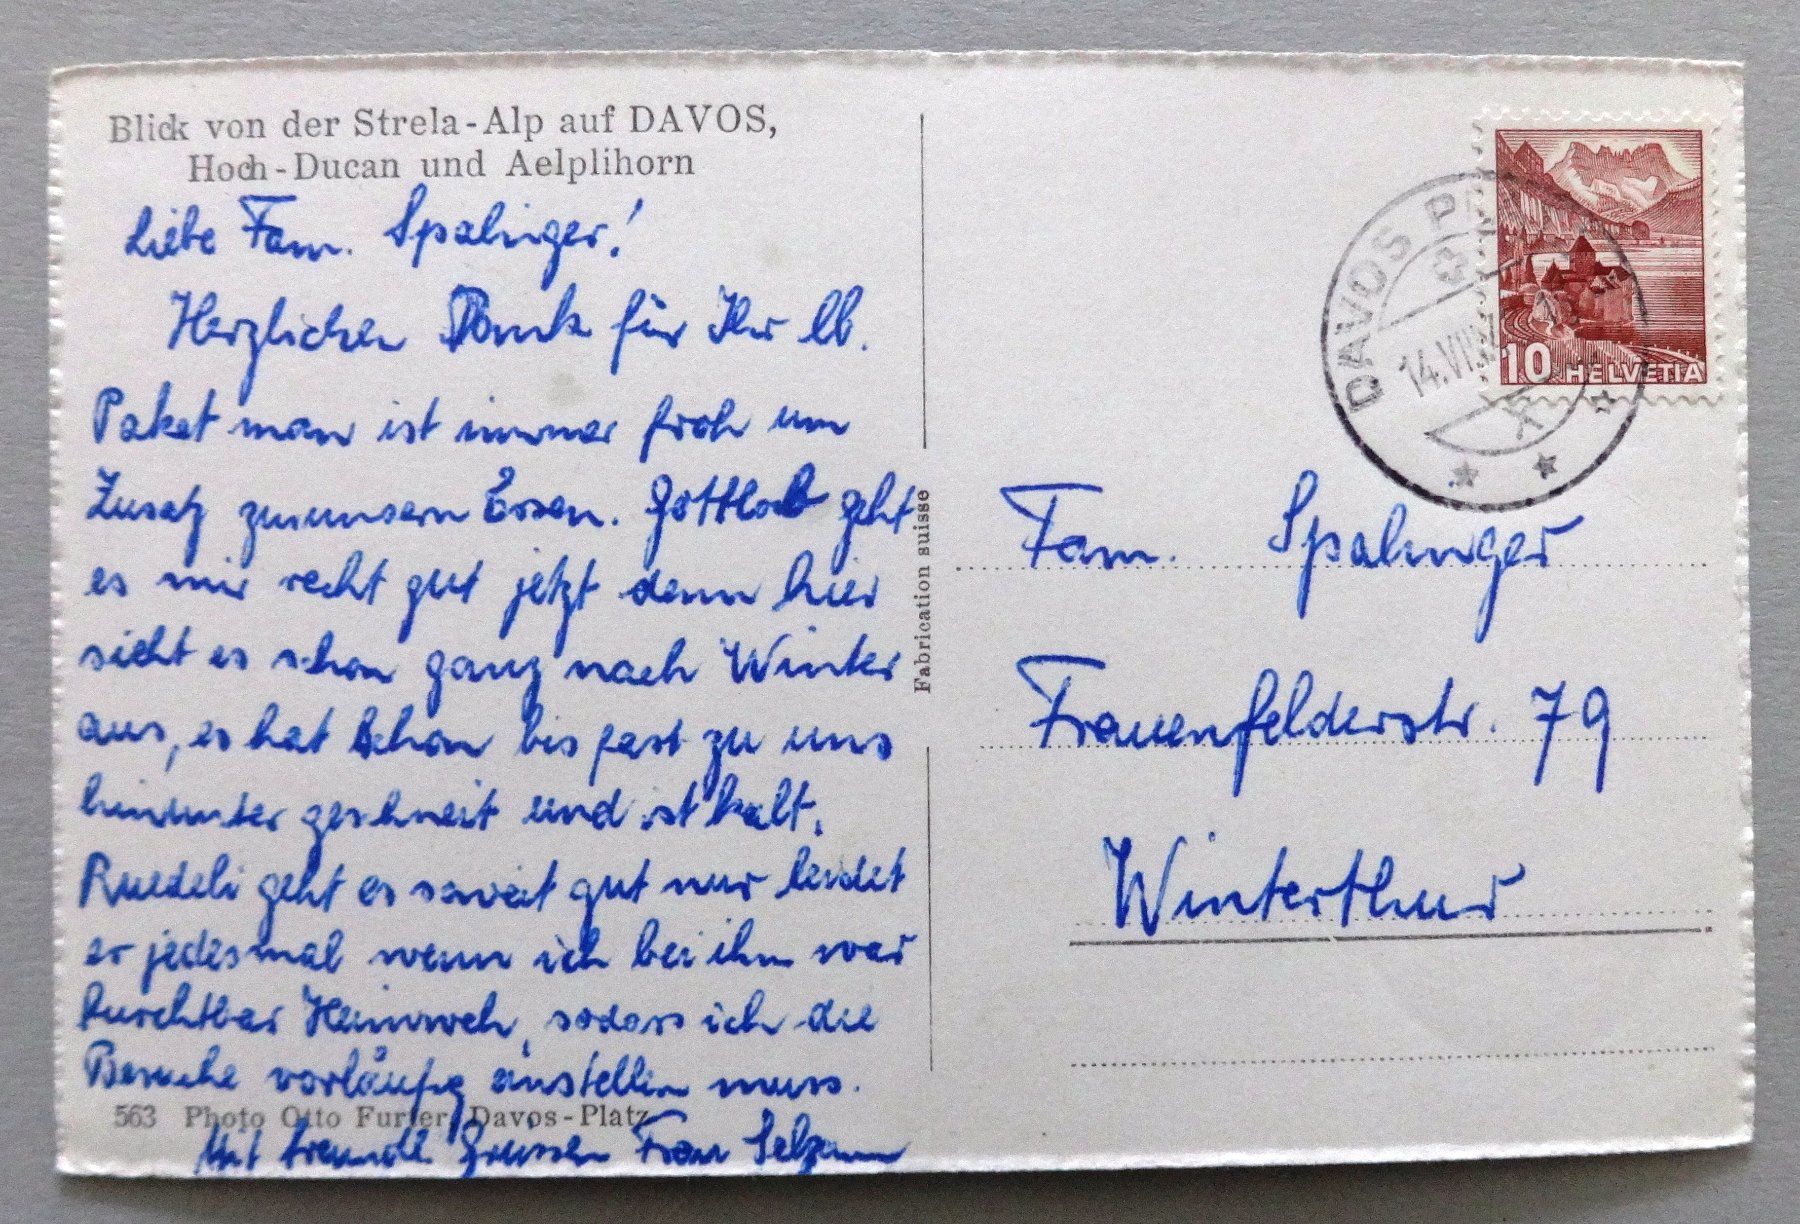 Blick von der Strela-Alp auf DAVOS,
Hoch-Ducan und Aelplihorn
Liebe Fam. Spalinger!
Herzlichen Dank für Ihr lb.
Paket man ist immer froh um
Zusatz zu unserm Essen. Gottlob geht
es mir recht gut jetzt denn hier
sieht es schon ganz nach Winter
aus, es hat schon bis fast zu uns
hinunter geschneit und ist kalt.
Ruedeli geht es soweit gut nur leidet
er jedesmal wenn ich bei ihm war
furchtbar Heimweh, sodass ich die
Besuche vorläufig einstellen muss.
563 Photo Otto Furter, Davos-Platz
Mit freundl. Grüssen Frau
Fabrication suisse
DAVOS
14.VIII
10 HELVETIA
Fam. Spalinger
Frauenfelderstr. 79
Winterthur